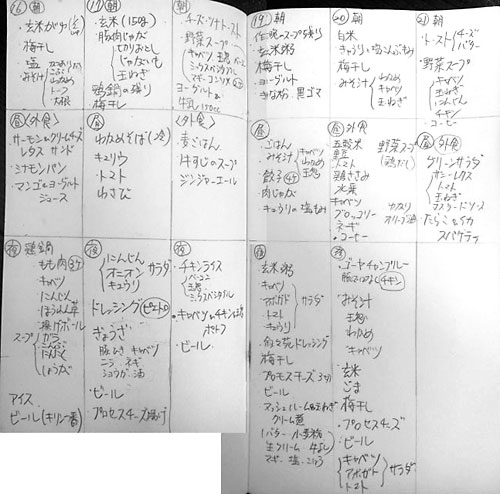 ⑯ 朝
・玄米がゆ
・梅干し
・塩
・みそ汁
わかめ
トーフ
大根
⑰ 朝
・玄米(150g)
・豚肉じゃが
じゃがいも
玉ねぎ
・鶏鍋の残り
・梅干し
朝
・チーズ・ツナトースト
・野菜スープ
キャベツ 玉ねぎ ベーコン
ミックスベジタブル
マギーコンソメ
・ヨーグルト
・牛乳150cc
昼 〈外食〉
・サーモン&クリームチーズ
レタス サンド
・シナモンパン
・マンゴーヨーグルト
ジュース
昼
・わかめそば(冷)
・キュウリ
・トマト
・わさび
〈外食〉
・麦ごはん
・牛すじのスープ
・ジンジャーエール
夜 鶏鍋
もも肉
キャベツ
にんじん
ほうれん草
揚げボール
スープ
ガラ
こんぶ
にんにく
しょうが
アイス
ビール(キリン一番)
夜
・にんじん
オニオン サラダ
キュウリ
ドレッシング(ピエトロ)
・ぎょうざ
豚ひき キャベツ
ニラ ネギ
ショウガ 油
・ビール
・プロセスチーズ
夜
・チキンライス
ベーコン
玉ねぎ
ミックスベジタブル
・キャベツとチキン
ポトフ
・ビール
⑲ 朝
・作晩スープ残り
・玄米粥
・梅干し
・ヨーグルト
・きな粉・黒ゴマ
⑳ 朝
・白米
・きゅうり・塩こんぶもみ
・梅干し
・みそ汁
わかめ
キャベツ
玉ねぎ
㉑ 朝
・トースト
チーズ
バター
・野菜スープ
キャベツ
玉ねぎ
にんじん
チキン
・コーヒー
昼
・ごはん
・みそ汁
キャベツ
わかめ
玉ねぎ
・餃子
・肉じゃが
・キュウリの塩もみ
昼 外食
・五穀米
・トマト
・鶏ささみ
・水菜
・キャベツ
・ブロッコリー
・ネギ
・コーヒー
野菜スープ
(鶏だし)
オリーブ油
昼 〈外食〉
・グリーンサラダ
サニーレタス
トマト
玉ねぎ
マスタードソース
・たらことイカ
スパゲティ
夜
・玄米粥
・キャベツ
アボガド
トマト
きゅうり
サラダ
・叙々苑ドレッシング
・梅干し
・プロセスチーズ
・ビール
・マッシュルーム&玉ねぎ
クリーム煮
バター 小麦粉
生クリーム 牛乳
マギー 塩・こしょう
夜
・ゴーヤチャンプルー
・みそ汁
玉ねぎ
わかめ
キャベツ
・玄米
・ごま
・梅干し
・プロセスチーズ
・ビール
キャベツ
アボガド
トマト
サラダ